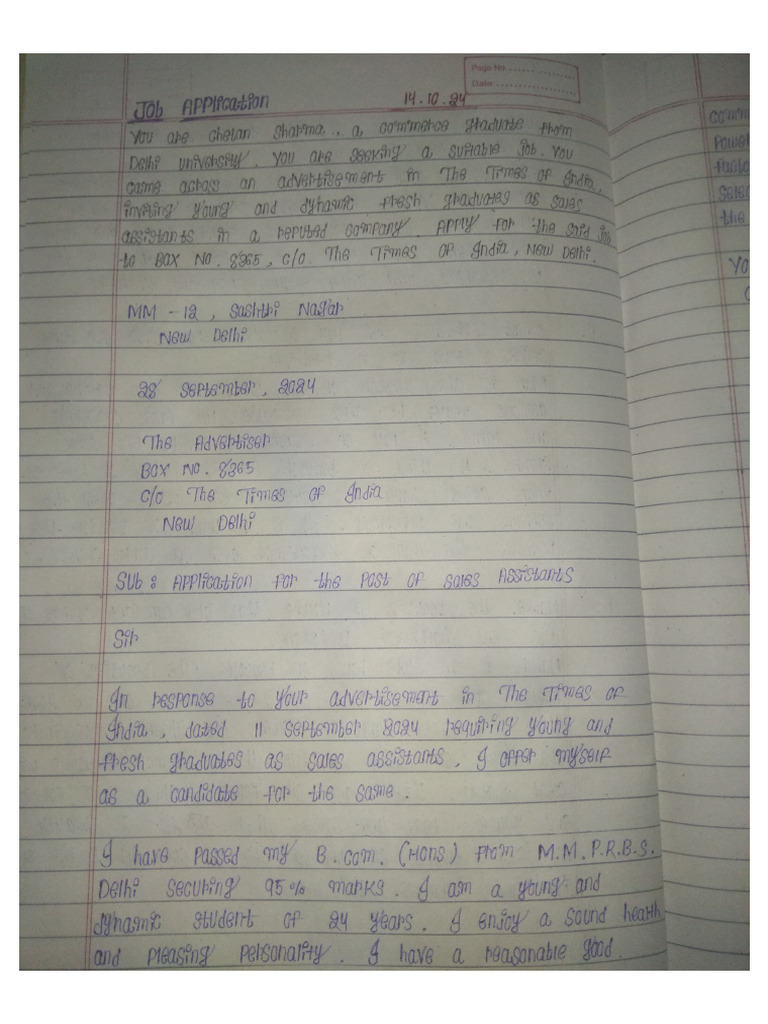 Page No.
Date
Job Application 14.10.24
You are Chetan Sharma, a commerce graduate from
Delhi university. You are seeking a suitable job. You
came across an advertisement in The Times of India,
inviting young and dynamic fresh graduates as sales
assistants in a reputed company. Apply for the said job
to Box No. 8365, C/o The Times of India, New Delhi.
MM - 12, Sashtri Nagar
New Delhi
28 September, 2024
The Advertiser
Box No. 8365
C/o The Times of India
New Delhi
Sub : Application for the Post of Sales Assistants
Sir
In response to your advertisement in The Times of
India, dated 11 September 2024 requiring young and
fresh graduates as sales assistants, I offer myself
as a candidate for the same.
I have passed my B.com. (Hons) from M.M.P.R.B.S.
Delhi securing 95% marks. I am a young and
dynamic student of 24 years. I enjoy a sound health
and pleasing personality. I have a reasonable good
comm
Power
sales
the
Yo